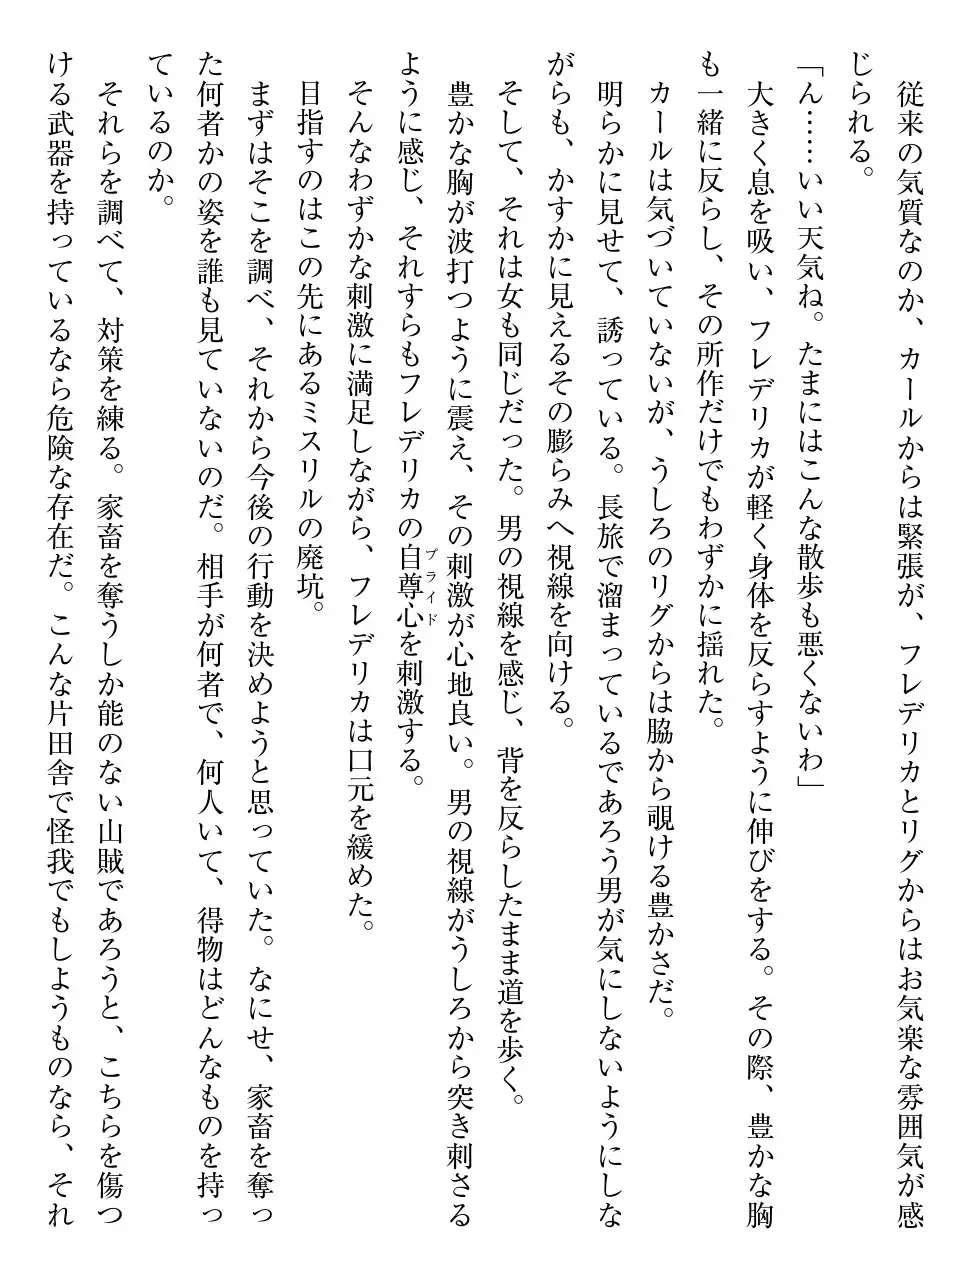 従来の気質なのか、カールからは緊張が、フレデリカとリグからはお気楽な雰囲気が感
じられる。
「ん……いい天気ね。たまにはこんな散歩も悪くないわ」
大きく息を吸い、フレデリカが軽く身体を反らすように伸びをする。その際、豊かな胸
も一緒に反らし、その所作だけでもわずかに揺れた。
カールは気づいていないが、うしろのリグからは脇から覗ける豊かさだ。
明らかに見せて、誘っている。長旅で溜まっているであろう男が気にしないようにしな
がらも、かすかに見えるその膨らみへ視線を向ける。
そして、それは女も同じだった。男の視線を感じ、背を反らしたまま道を歩く。
豊かな胸が波打つように震え、その刺激が心地良い。男の視線がうしろから突き刺さる
ように感じ、それすらもフレデリカの自尊心プライドを刺激する。
そんなわずかな刺激に満足しながら、フレデリカは口元を緩めた。
目指すのはこの先にあるミスリルの廃坑。
まずはそこを調べ、それから今後の行動を決めようと思っていた。なにせ、家畜を奪っ
た何者かの姿を誰も見ていないのだ。相手が何者で、何人いて、得物はどんなものを持っ
ているのか。
それらを調べて、対策を練る。家畜を奪うしか能のない山賊であろうと、こちらを傷つ
ける武器を持っているなら危険な存在だ。こんな片田舎で怪我でもしようものなら、それ